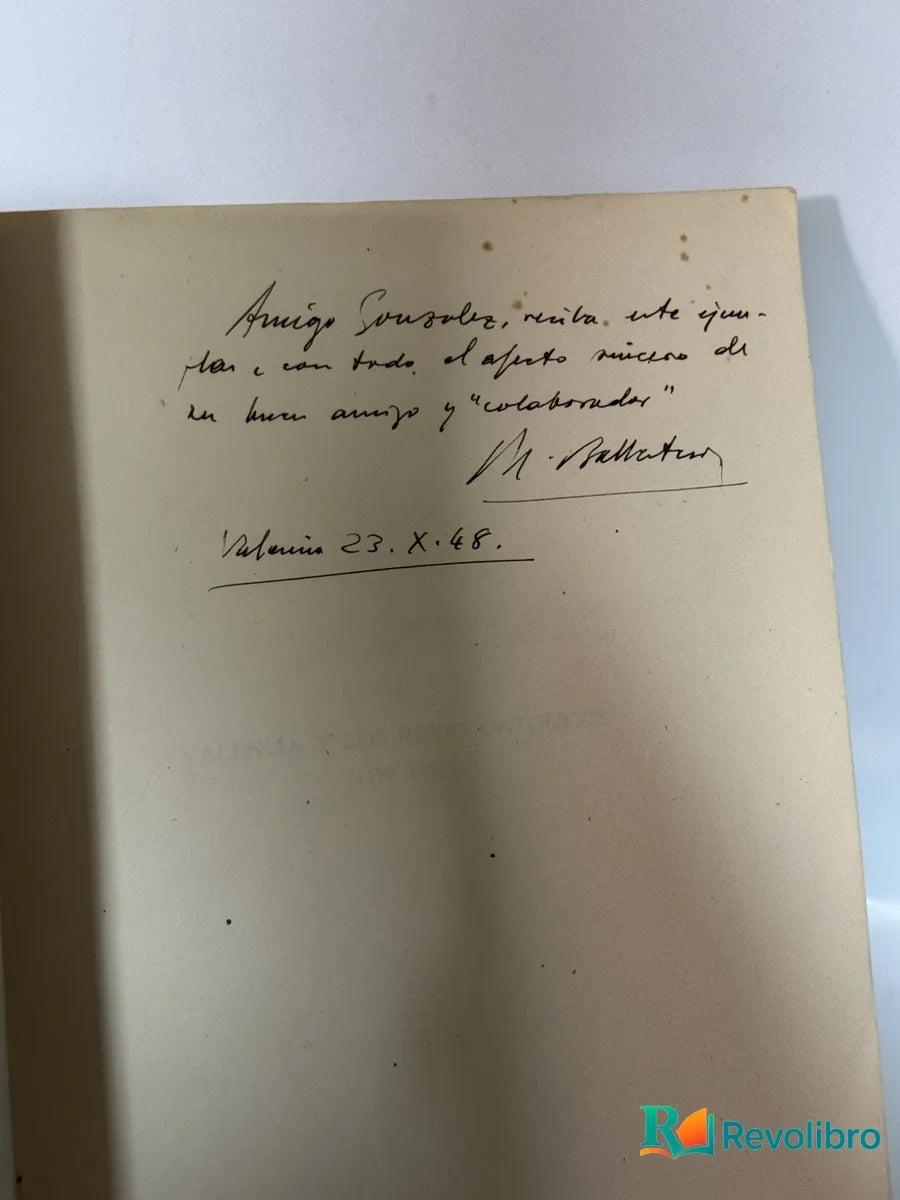 Amigo Gonzalez, reciba este ejem-
plar, con todo el afecto sincero de
su buen amigo y "colaborador"
M. Ballester
Valencia 23.X.48.
VALENCIA Y LOS REYES CATOLICOS
Revolibro